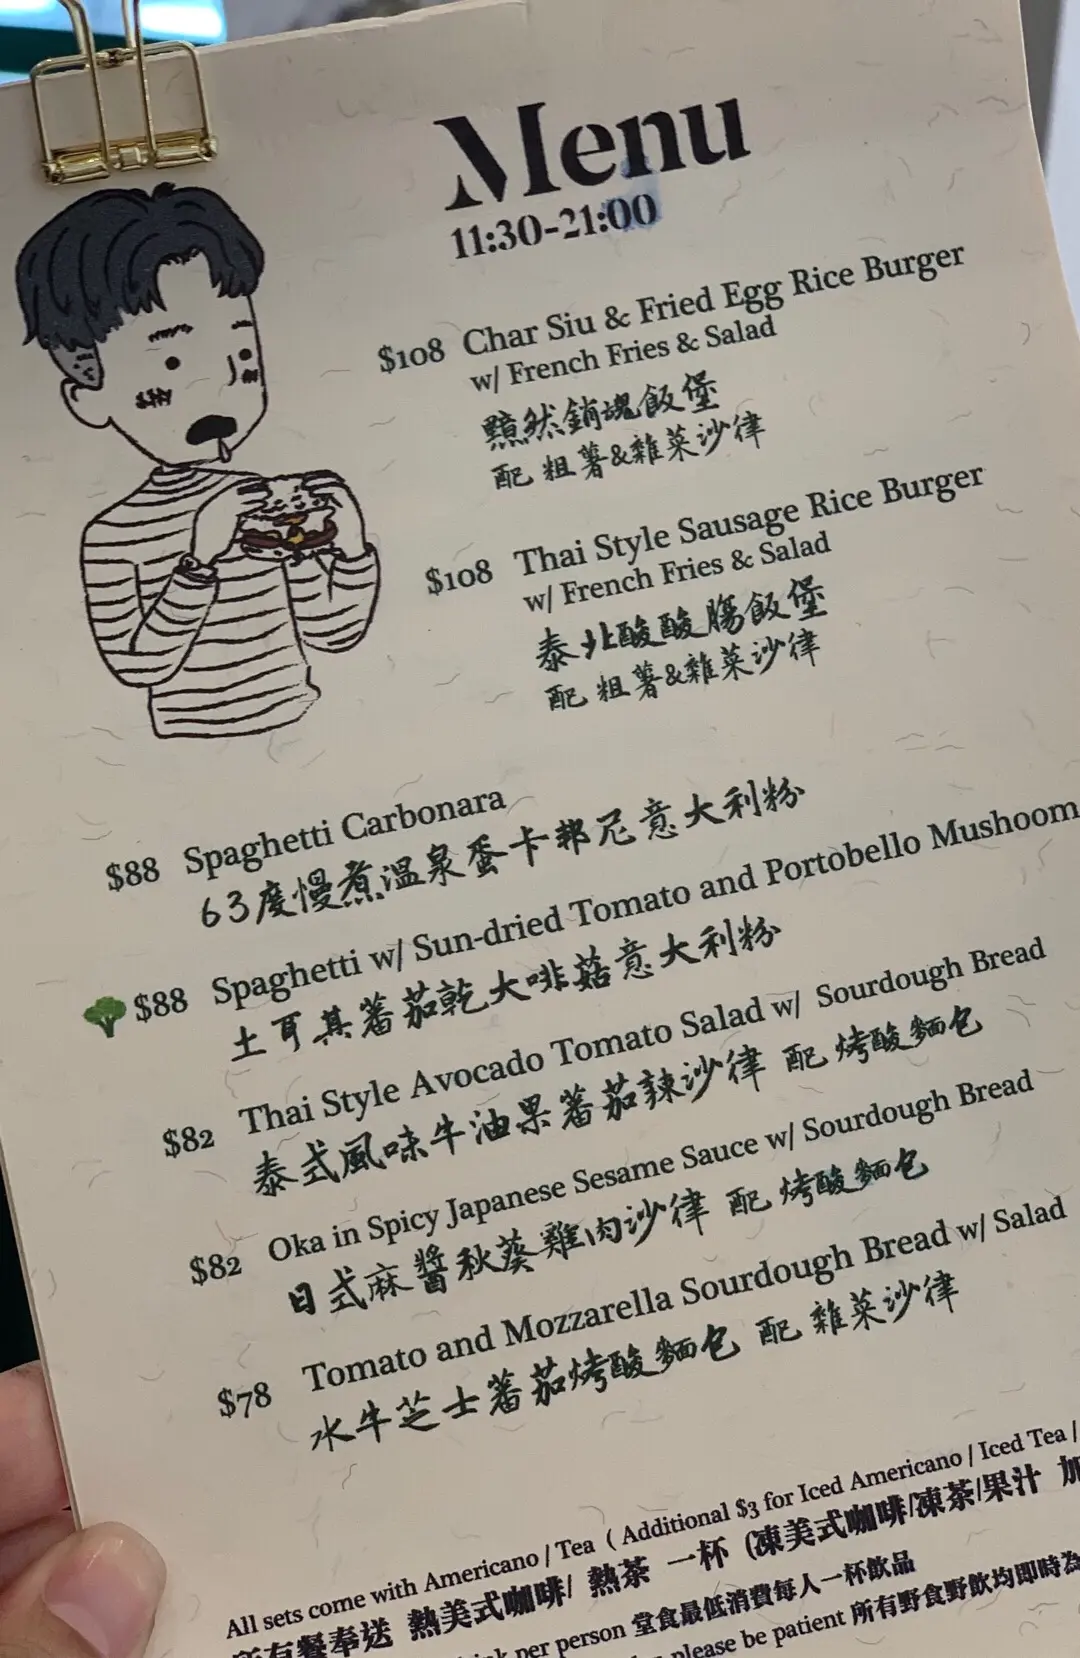 Menu
11:30-21:00
$108 Char Siu & Fried Egg Rice Burger
w/ French Fries & Salad
黯然銷魂飯堡
配 粗薯&雜菜沙律
$108 Thai Style Sausage Rice Burger
w/ French Fries & Salad
泰北酸酸腸飯堡
配 粗薯&雜菜沙律
$88 Spaghetti Carbonara
63度慢煮溫泉蛋卡邦尼意大利粉
$88 Spaghetti w/ Sun-dried Tomato and Portobello Mushoom
土耳其蕃茄乾大啡菇意大利粉
$82 Thai Style Avocado Tomato Salad w/ Sourdough Bread
泰式風味牛油果蕃茄辣沙律 配 烤酸麵包
$82 Oka in Spicy Japanese Sesame Sauce w/ Sourdough Bread
日式麻醬秋葵雞肉沙律 配 烤酸麵包
$78 Tomato and Mozzarella Sourdough Bread w/ Salad
水牛芝士蕃茄烤酸麵包 配 雜菜沙律
All sets come with Americano / Tea ( Additional $3 for Iced Americano / Iced Tea /
所有餐奉送 熱美式咖啡/ 熱茶 一杯 (凍美式咖啡/凍茶/果汁 加
per person 堂食最低消費每人一杯飲品
please be patient 所有野食野飲均即時為